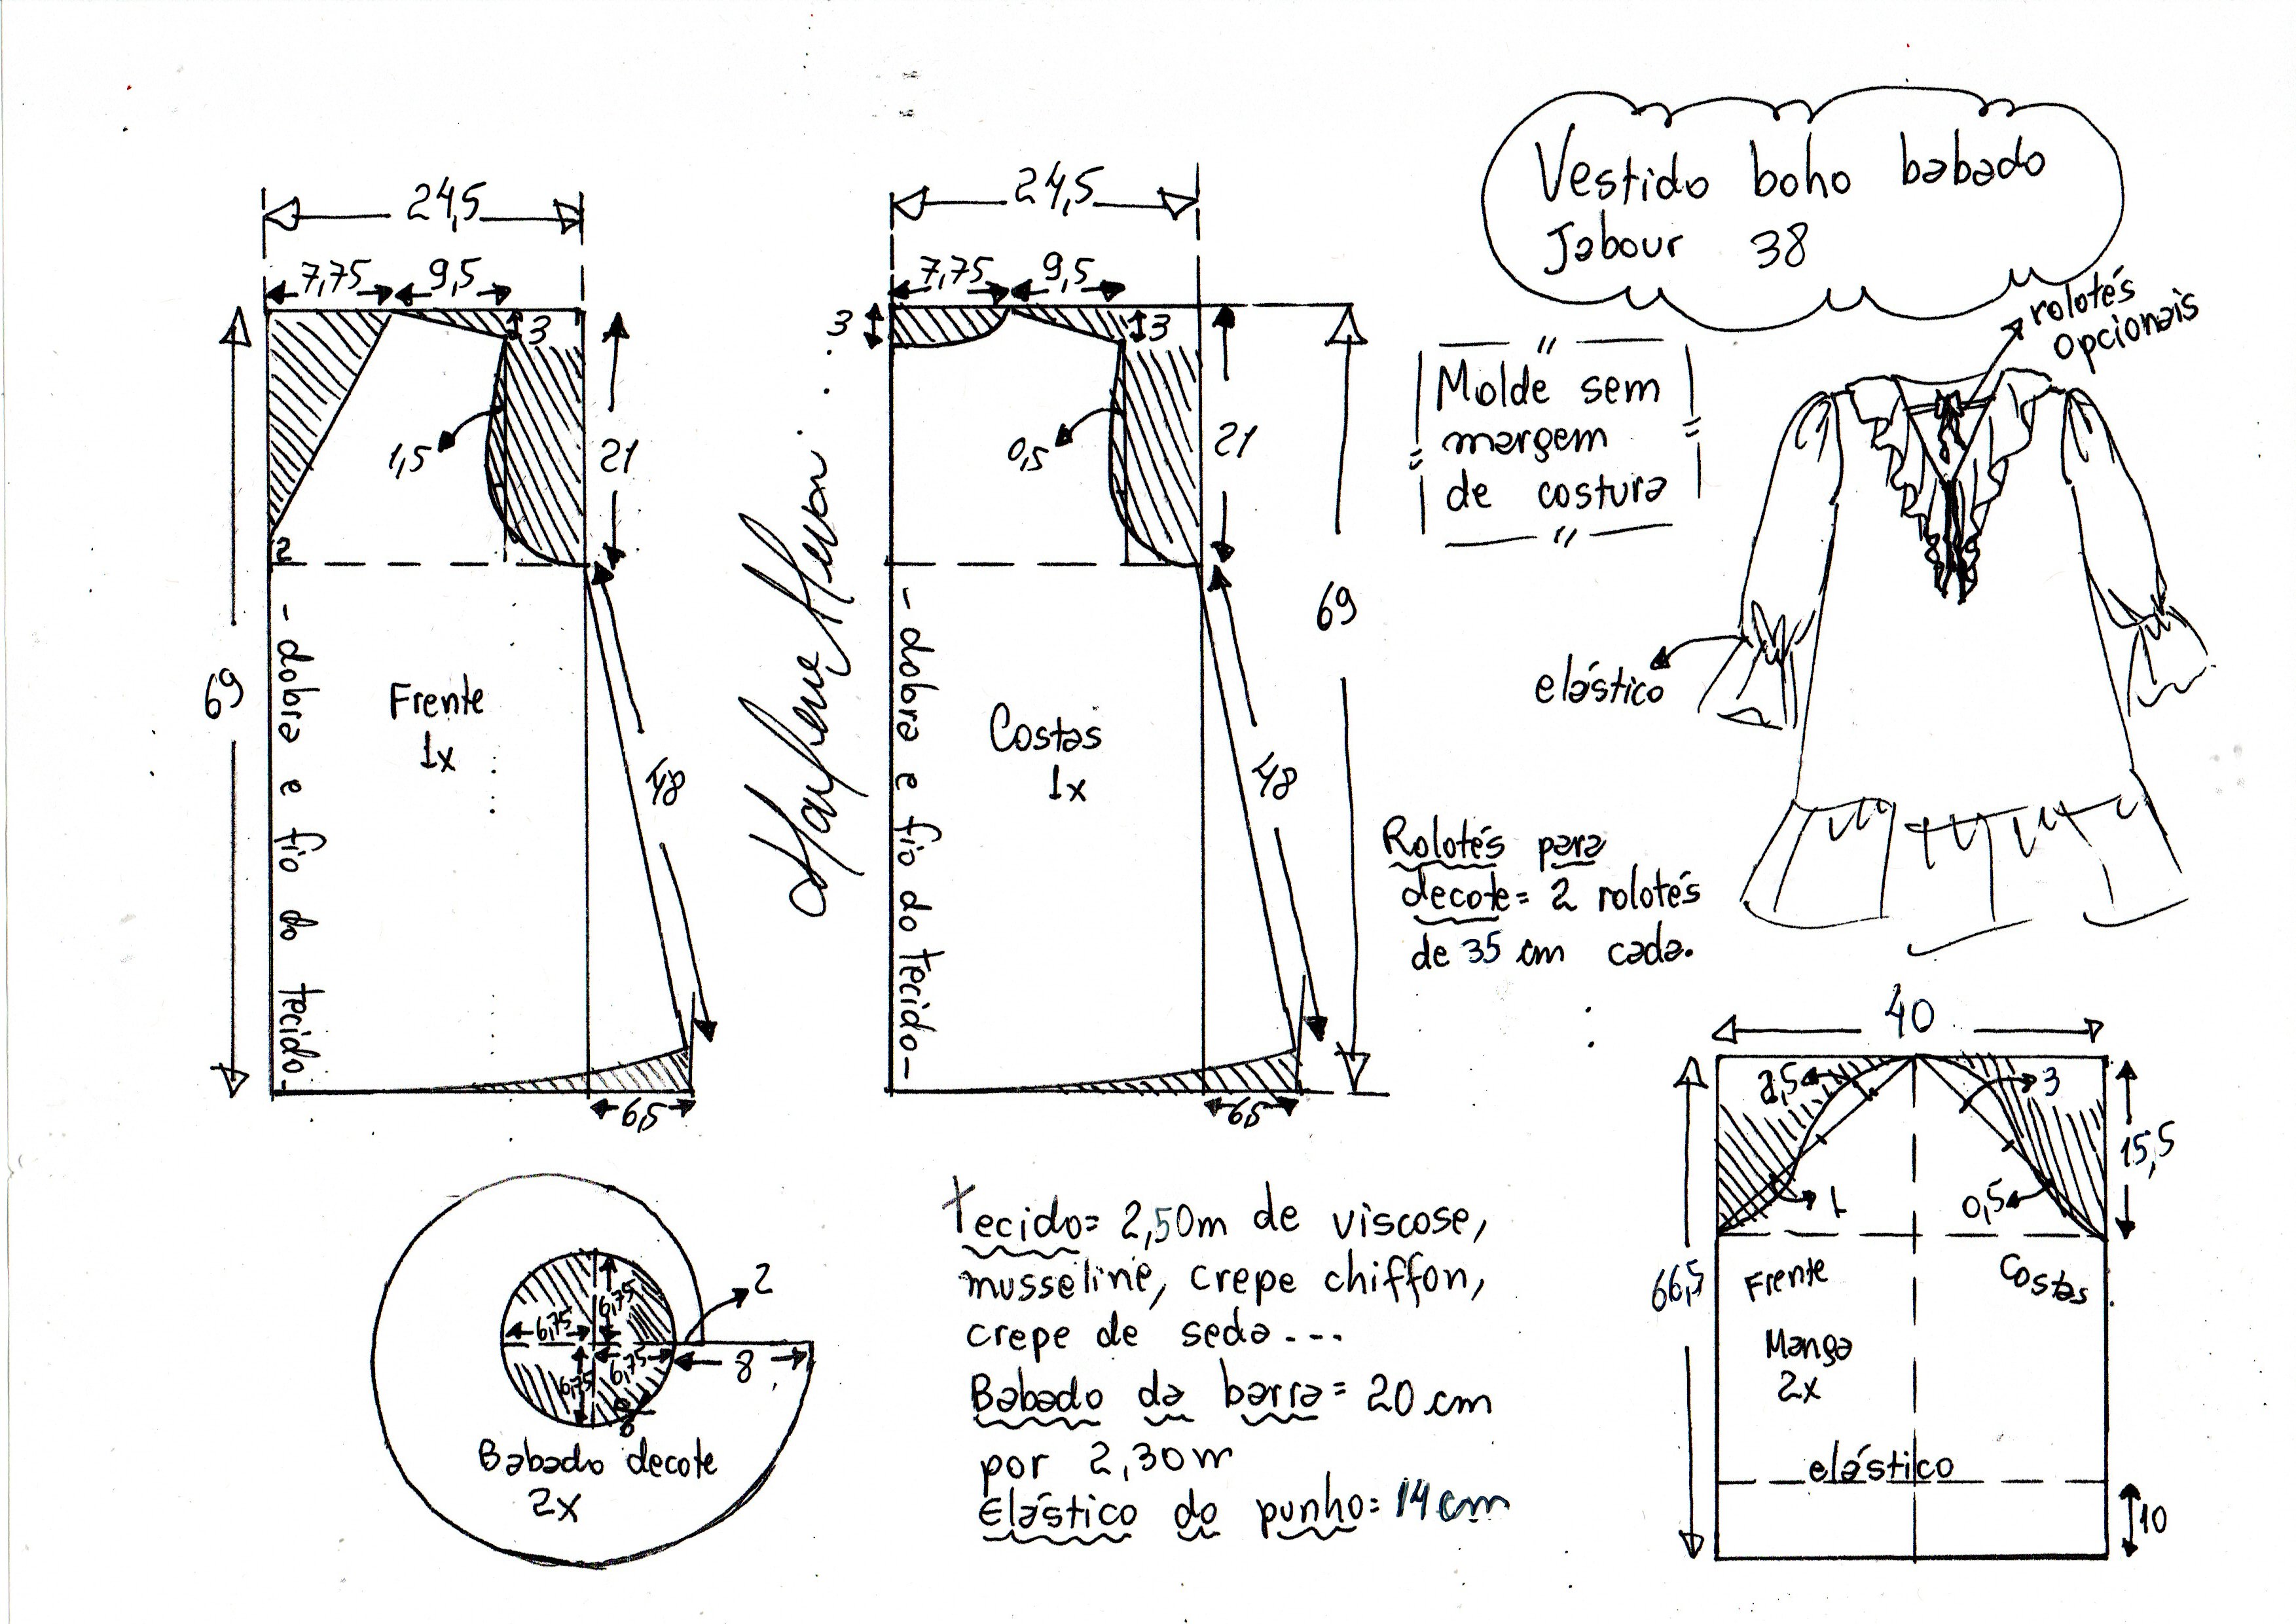 Vestido boho babado
Jabour 38
rolotés
opcionais
Molde sem
margem
de costura
elástico
Rolotés para
decote= 2 rolotés
de 35 cm cada.
24,5
7,75
9,5
3
1,5
21
2
69
48
6,5
Frente
1x
- dobra e fio do tecido-
24,5
7,75
9,5
3
3
0,5
21
69
48
6,5
Costas
1x
- dobra e fio do tecido-
6,75
6,75
6,75
6,75
2
8
Babado decote
2x
Tecido= 2,50m de viscose,
musseline, crepe chiffon,
crepe de seda...
Babado da barra= 20 cm
por 2,30m
Elástico do punho= 14cm
40
3
15,5
1
0,5
66,5
Frente
Costas
Manga
2x
elástico
10